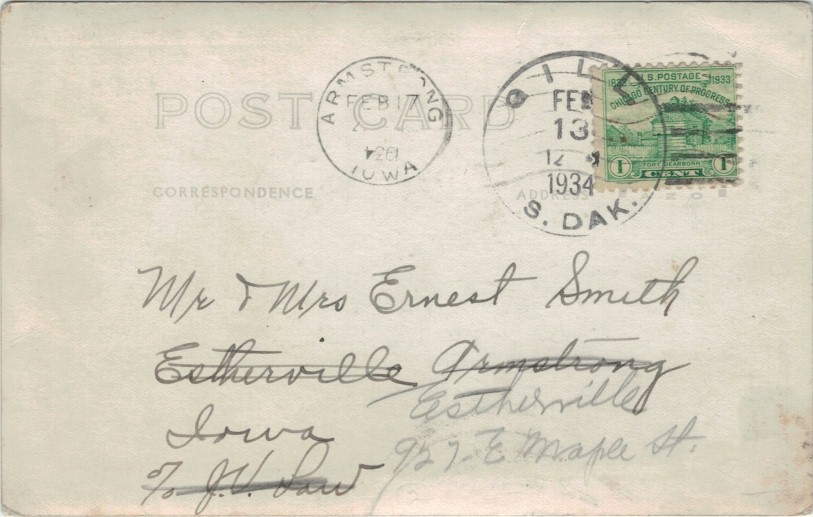 POST CARD
ARMSTRONG
FEB 17
IOWA
FEB
13
12
1934
S. DAK.
U.S. POSTAGE 1933
CHICAGO CENTURY OF PROGRESS
FORT DEARBORN
1 CENT 1
CORRESPONDENCE
ADDRESS
Mr & Mrs Ernest Smith
Estherville Armstrong
Estherville
Iowa
927 E Maple St.
% J.V. Law